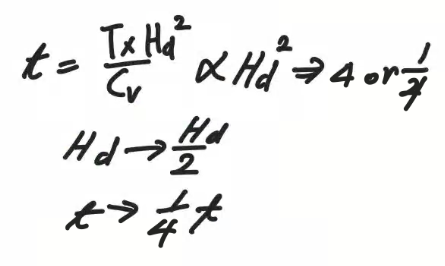 t = Tx Hd²/Cv ∝ Hd² ⇒ 4 or 1/4
Hd → Hd/2
t → 1/4 t